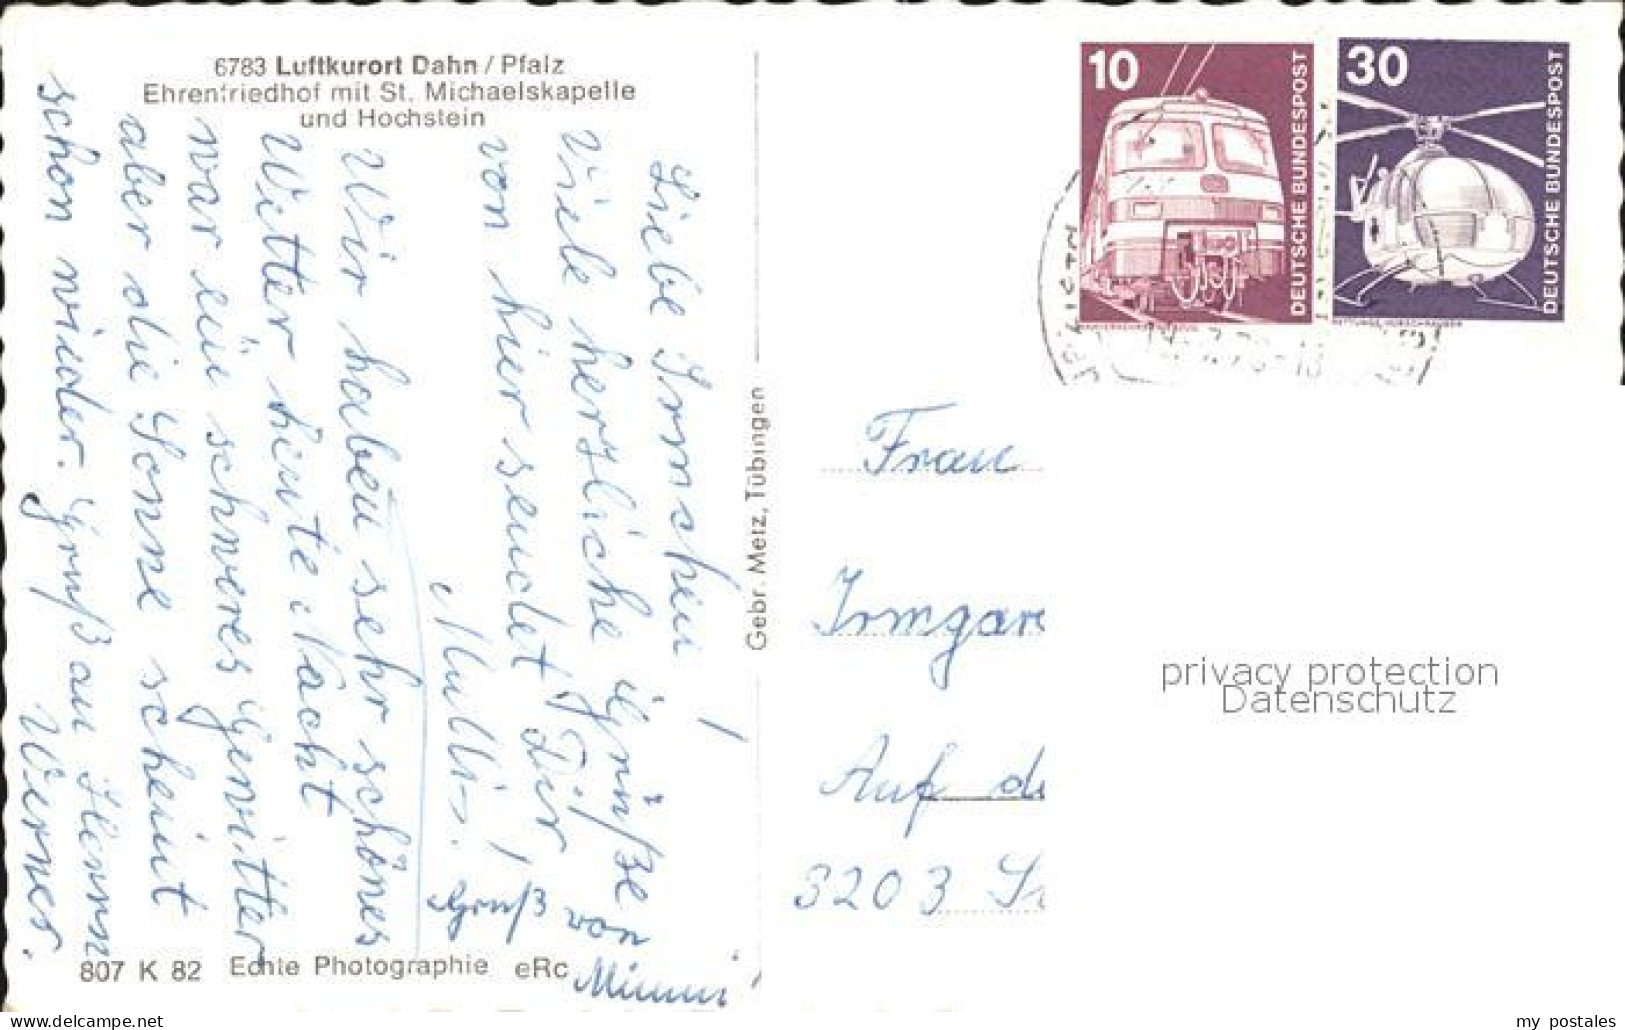 6783 Luftkurort Dahn / Pfalz
Ehrenfriedhof mit St. Michaelskapelle
und Hochstein
Liebe Irmchen!
Viele herzliche Grüße
von hier sendet Dir
Mutti!
Wir haben sehr schönes
Wetter heute Nacht
war ein schweres Gewitter
aber die Sonne scheint
schon wieder. Gruß an
Werner.
Gruß von
Mimmi
807 K 82 Echte Photographie eRc
Gebr. Metz, Tübingen
10
DEUTSCHE BUNDESPOST
30
DEUTSCHE BUNDESPOST
Frau
Irmgar
Auf de
3203 S
privacy protection
Datenschutz
my postales